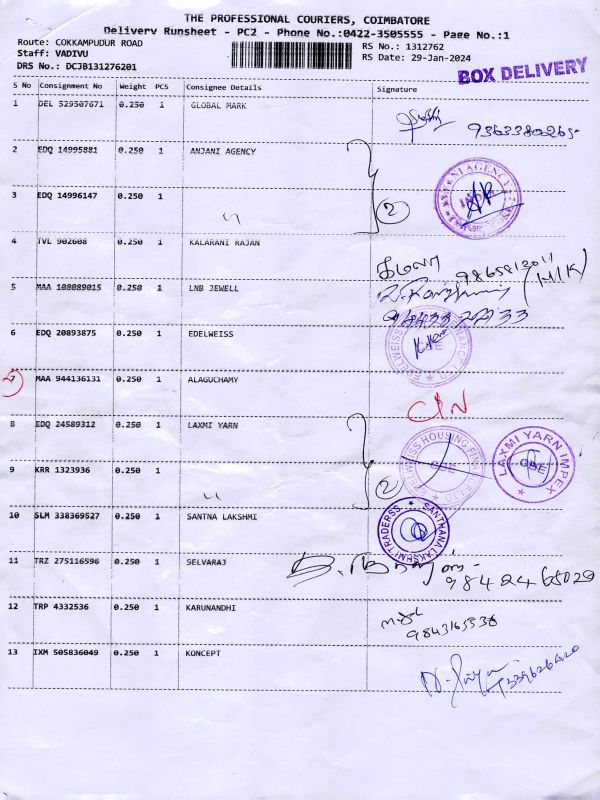 THE PROFESSIONAL COURIERS, COIMBATORE
Delivery Runsheet - PC2 - Phone No.:0422-3505555 - Page No.:1
Route: COKKAMPUDUR ROAD
RS No.: 1312762
Staff: VADIVU
RS Date: 29-Jan-2024
DRS No.: DCJB131276201
BOX DELIVERY
S No Consignment No Weight PCS Consignee Details Signature
1 DEL 529507671 0.250 1 GLOBAL MARK
9363380265
2 EDQ 14995881 0.250 1 ANJANI AGENCY
3 EDQ 14996147 0.250 1
〃 2
4 TVL 902608 0.250 1 KALARANI RAJAN
கமலா
5 MAA 108089015 0.250 1 LNB JEWELL
6 EDQ 20893875 0.250 1 EDELWEISS
EDELWEISS
7 MAA 944136131 0.250 1 ALAGUCHAMY
C/N
8 EDQ 24589312 0.250 1 LAXMI YARN
EDELWEISS HOUSING
LAXMI YARN IMPEX
CBE
9 KRR 1323936 0.250 1
〃 2
10 SLM 338369527 0.250 1 SANTNA LAKSHMI
SANTHANA LAKSHMI TRADERSS
11 TRZ 275116596 0.250 1 SELVARAJ
12 TRP 4332536 0.250 1 KARUNANDHI
13 IXM 505836049 0.250 1 KONCEPT